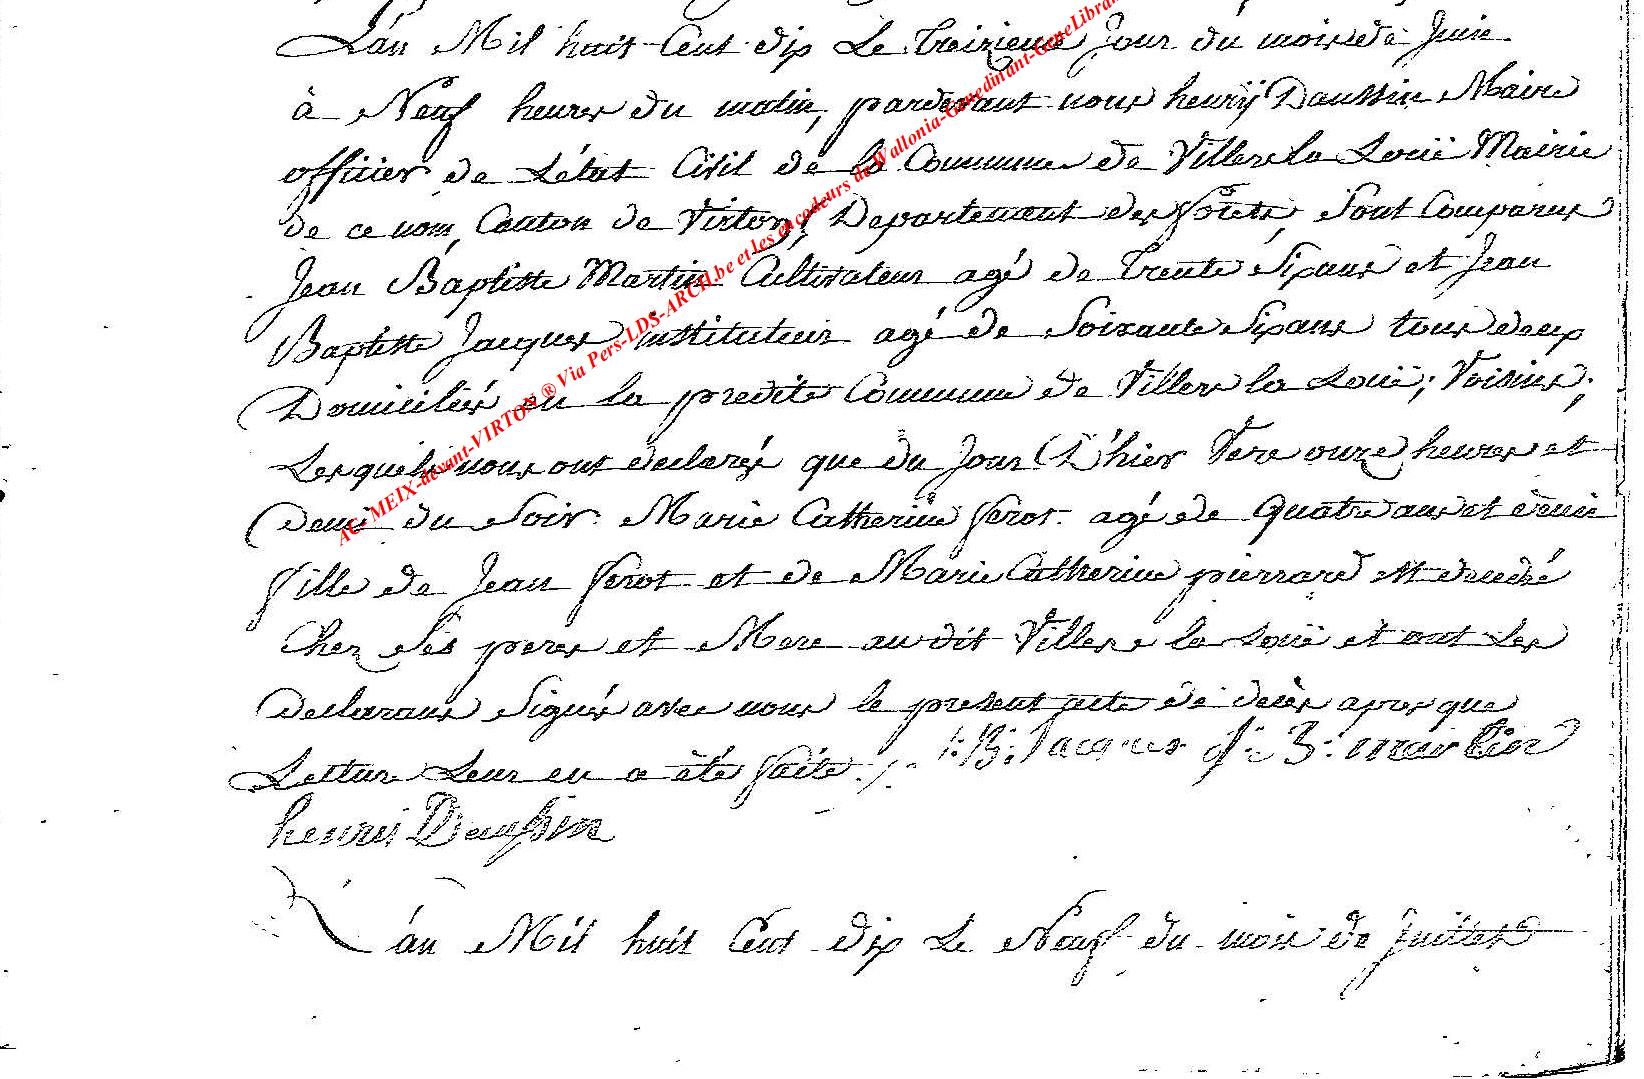 L'an Mil huit Cent dix Le Treizieme Jour du mois de Juin
à Neuf heures du matin, pardevant nous henrÿ Daussin Maire
officier de L'état Civil de la Commune de Villers la Loüe Mairie
de ce nom, Canton de Virton, Departement des forets, Sont Comparus
Jean Baptiste Martin Cultivateur agé de Trente Six ans et Jean
Baptiste Jacques instituteur agé de Soixante Six ans tous deux
Domiciliés en la predite Commune de Villers la Loüe; Voisins;
Lesquels nous ont declarés que du Jour D'hier Vers onze heures et
demi du Soir Marie Catherine ferot agé de Quatre ans et demie
fille de Jean ferot et de Marie Catherine pierrard est decedé
Chez Ses peres et Mere au dit Villers la Loüe et ont Les
declarans Signés avec nous le present acte de decès apres que
Lecture Leur en a été faite ./.
J: B: Jacques J: B: martin
henri Daussin
L'an Mil huit Cent dix Le Neuf du mois de Juillet
AC-MEIX-devant-VIRTON® Via Pers-LDS-ARCH.be et les encodeurs de Wallonia-Genedinant-GeneLibran